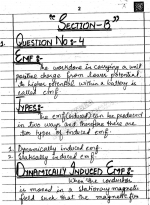 2
"SECTION-B"
1. QUESTION NO 8-4
EMF 8-
The workdone in carrying a unit
positive charge from lower potential
to higher potential within a battery is
called emf.
TYPES:-
The emf (induced) can be produced
in two ways and therefore there are
two types of induced emf.
1. Dynamically induced emf.
2. Statically induced emf.
DYNAMICALLY INDUCED EMF 8-
When the conductor
is moved in a stationary magnetic
field such that the magnetic